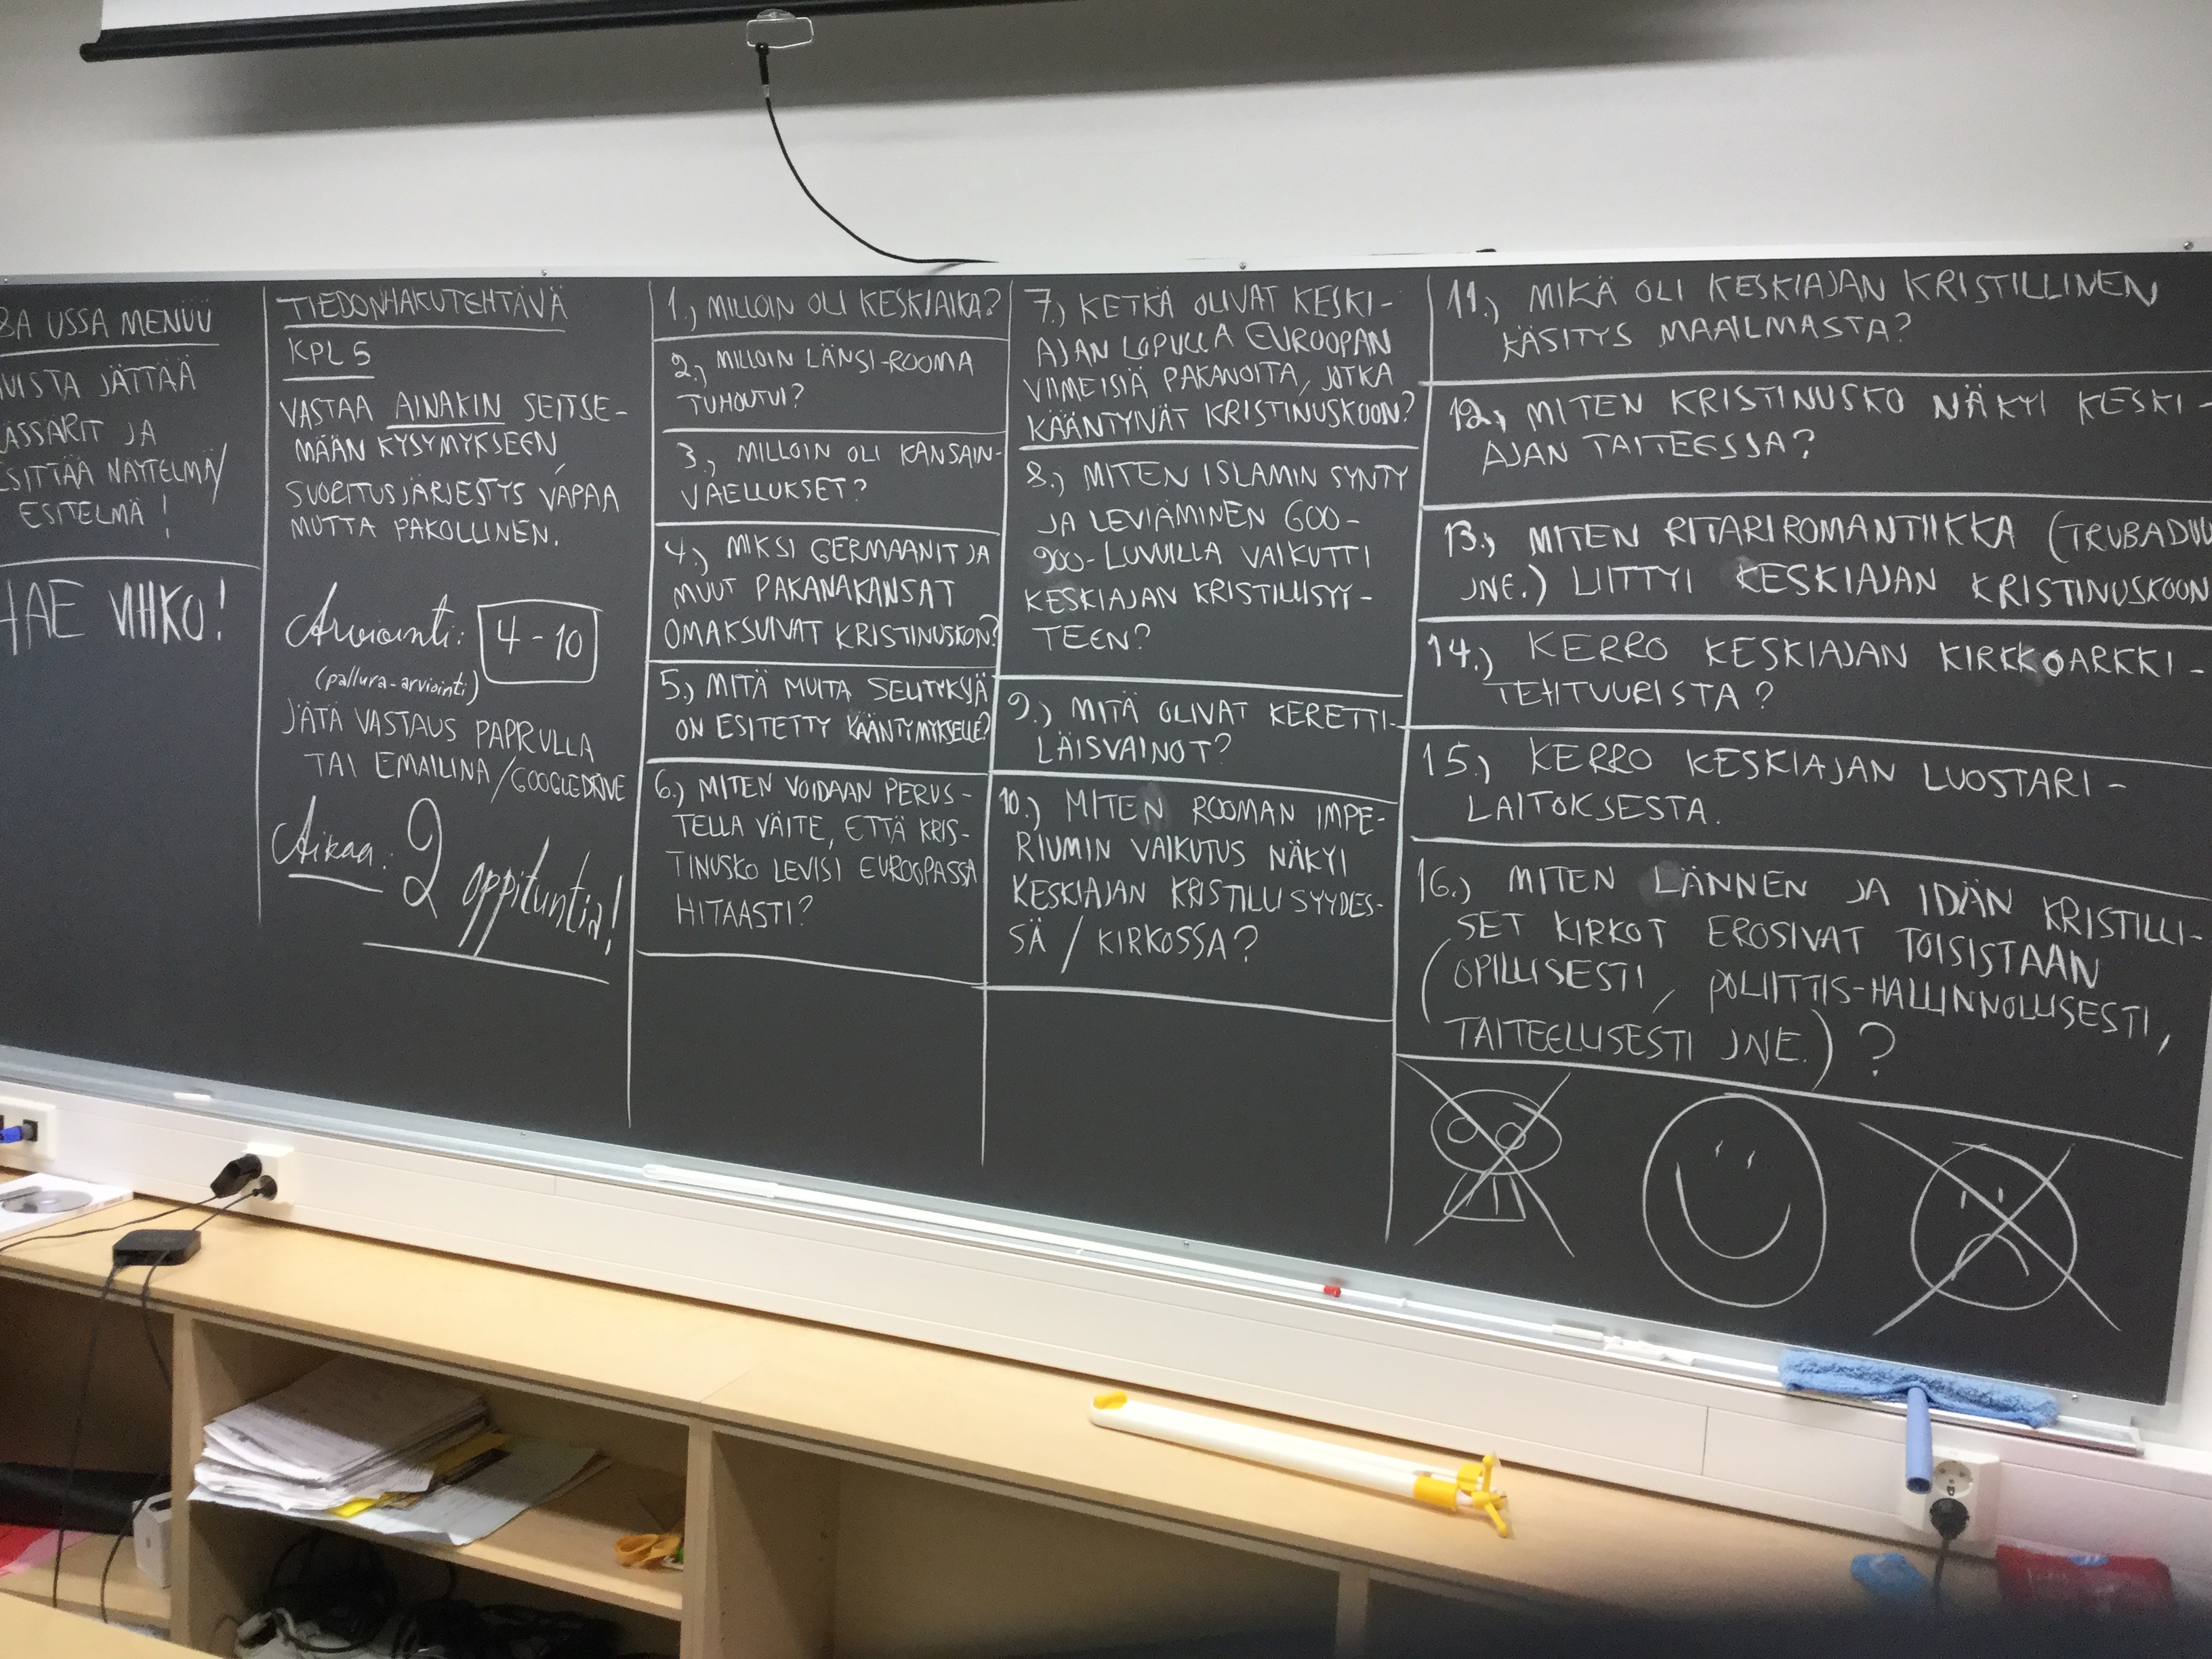 8A USSA MENUU
MUISTA JÄTTÄÄ
ÄSSÄRIT JA
ESITTÄÄ NÄYTELMÄ/
ESITELMÄ!
HAE VIHKO!
TIEDONHAKUTEHTÄVÄ
KPL 5
VASTAA AINAKIN SEITSE-
MÄÄN KYSYMYKSEEN,
SUORITUSJÄRJESTYS VAPAA
MUTTA PAKOLLINEN.
Arviointi: 4-10
(pallura-arviointi)
JÄTÄ VASTAUS PAPRULLA
TAI EMAILINA/GOOGLEDRIVE
Aikaa: 2 oppituntia!
1.) MILLOIN OLI KESKIAIKA?
2.) MILLOIN LÄNSI-ROOMA
TUHOUTUI?
3.) MILLOIN OLI KANSAIN-
VAELLUKSET?
4.) MIKSI GERMAANIT JA
MUUT PAKANAKANSAT
OMAKSUIVAT KRISTINUSKON?
5.) MITÄ MUITA SELITYKSJÄ
ON ESITETTY KÄÄNTYMYKSELLE?
6.) MITEN VOIDAAN PERUS-
TELLA VÄITE, ETTÄ KRIS-
TINUSKO LEVISI EUROOPASSA
HITAASTI?
7.) KETKÄ OLIVAT KESKI-
AJAN LOPULLA EUROOPAN
VIIMEISIÄ PAKANOITA, JOTKA
KÄÄNTYIVÄT KRISTINUSKOON?
8.) MITEN ISLAMIN SYNTY
JA LEVIÄMINEN 600-
900-LUVUILLA VAIKUTTI
KESKIAJAN KRISTILLISYY-
TEEN?
9.) MITÄ OLIVAT KERETTI-
LÄISVAINOT?
10.) MITEN ROOMAN IMPE-
RIUMIN VAIKUTUS NÄKYI
KESKIAJAN KRISTILLISYYDES-
SÄ / KIRKOSSA?
11.) MIKÄ OLI KESKIAJAN KRISTILLINEN
KÄSITYS MAAILMASTA?
12.) MITEN KRISTINUSKO NÄKYI KESKI-
AJAN TAITEESSA?
13.) MITEN RITARIROMANTIIKKA (TRUBADUU
JNE.) LIITTYI KESKIAJAN KRISTINUSKOON
14.) KERRO KESKIAJAN KIRKKOARKKI-
TEHTUURISTA?
15.) KERRO KESKIAJAN LUOSTARI-
LAITOKSESTA.
16.) MITEN LÄNNEN JA IDÄN KRISTILLI-
SET KIRKOT EROSIVAT TOISISTAAN
(OPILLISESTI, POLIITTIS-HALLINNOLLISESTI,
TAITEELLISESTI JNE.)?